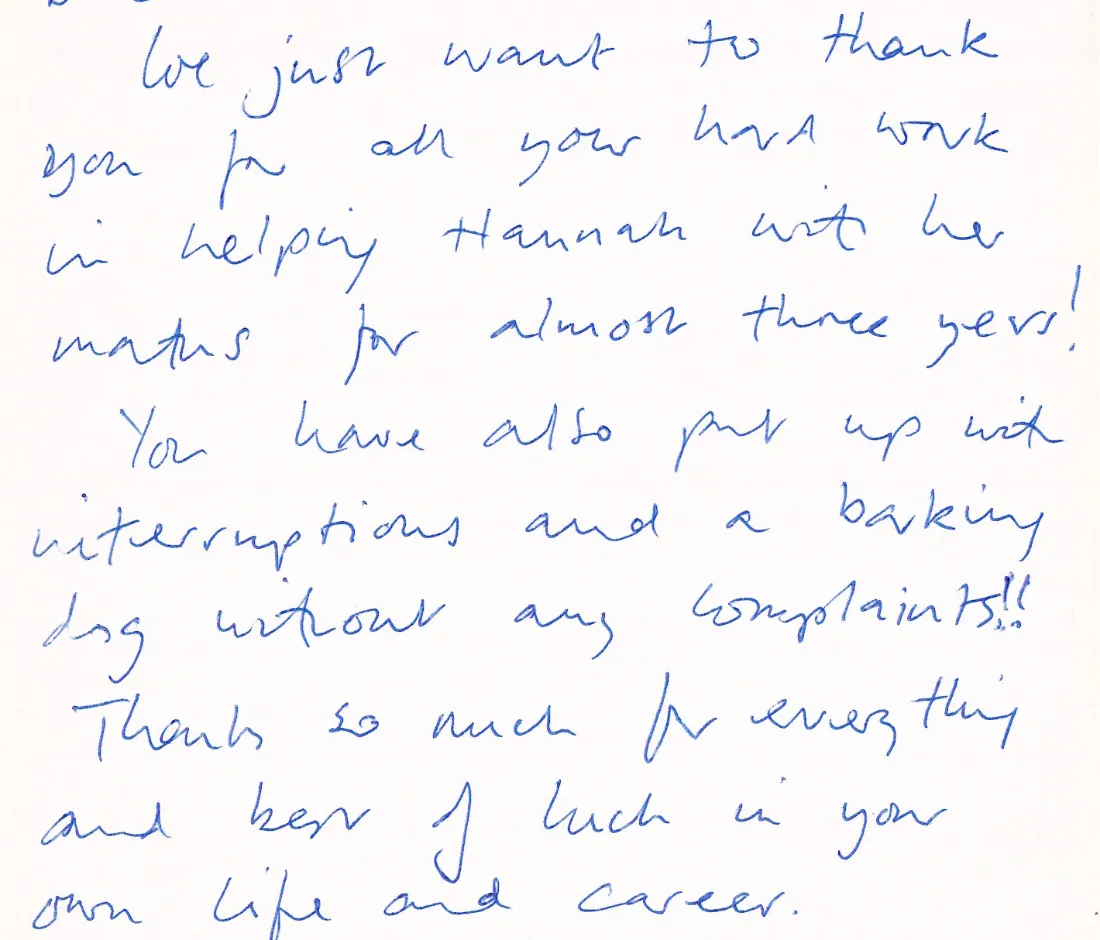 We just want to thank
you for all your hard work
in helping Hannah with her
maths for almost three years!
You have also put up with
interruptions and a barking
dog without any complaints!!
Thanks so much for everything
and best of luck in your
own life and career.